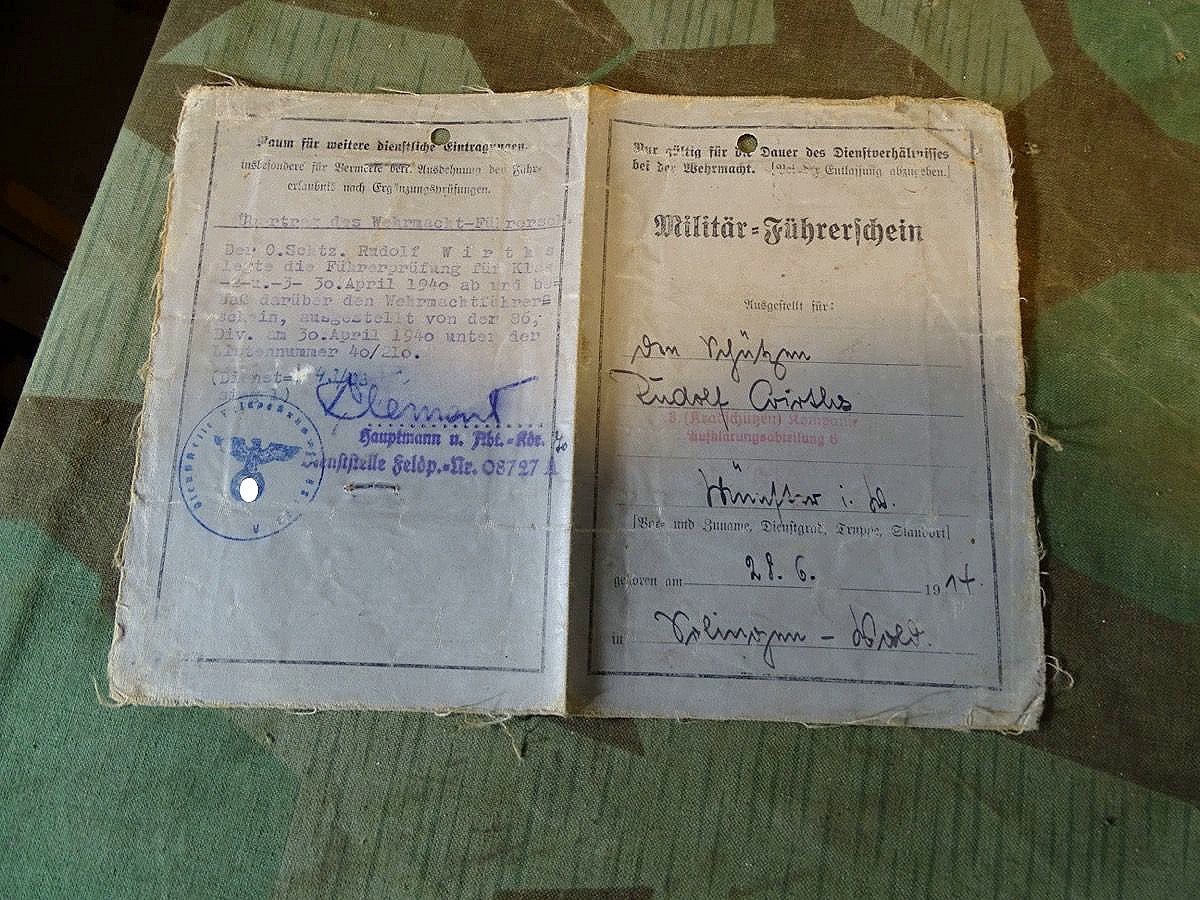 Raum für weitere dienstliche Eintragungen.
insbesondere für Vermerke betr. Ausdehnung der Fahr-
erlaubnis nach Ergänzungsprüfungen.
Übertrag des Wehrmacht-Führersch.
Der O.Schtz. Rudolf W i r t h s
legte die Führerprüfung für Klas
-2-u.-3- 30.April 1940 ab und be-
saß darüber den Wehrmachtführer=
schein, ausgestellt von der 86,
Div. am 30.April 1940 unter der
Listennummer 40/210.
(Dienst=
Clemont
Hauptmann u. Abt.-Kdr.
Dienststelle Feldp.-Nr. 08727 A
Nur gültig für die Dauer des Dienstverhältnisses
bei der Wehrmacht. [Bei der Entlassung abzugeben.]
Militär-Führerschein
Ausgestellt für:
den Schützen
Rudolf Wirths
3. (Kradschützen) Kompanie
Aufklärungsabteilung 6
Münster i. W.
[Vor- und Zuname, Dienstgrad, Truppe, Standort]
geboren am 28. 6. 1917.
in Solingen - Wald.